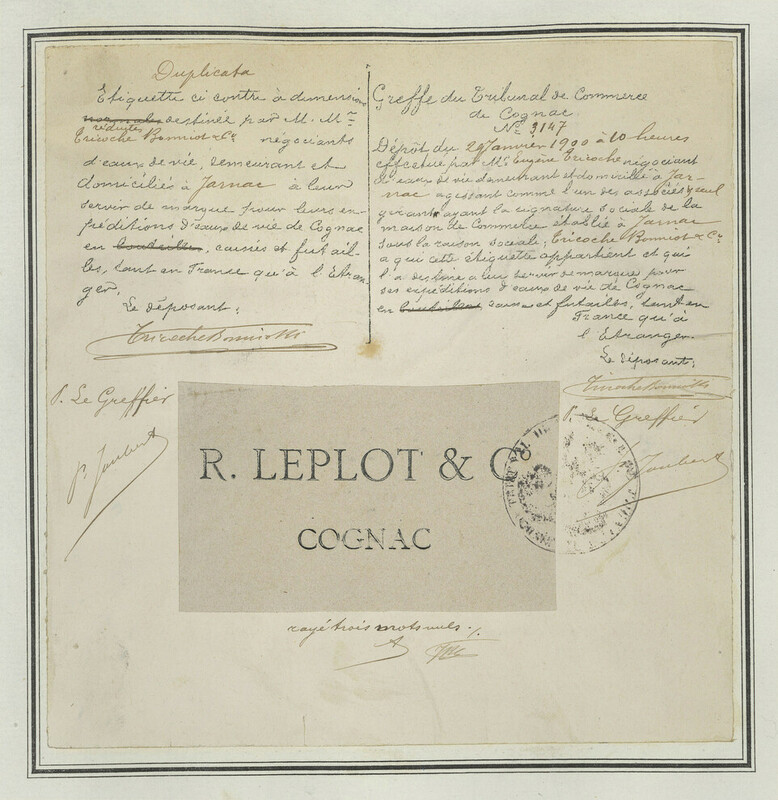 Duplicata
Etiquette ci contre à dimensions
normales destinée par M. M.rs
réduites
Tricoche Bonniot & Cie négociants
d'eaux de vie, demeurant et
domiciliés à Jarnac à leur
servir de marque pour leurs ex-
péditions d'eaux de vie de Cognac
en bouteilles, caisses et futail-
les, tant en France qu'à l'Etran-
ger.
Le déposant:
Tricoche Bonniot & Cie
P. Le Greffier
P. Joubert
Greffe du Tribunal de Commerce
de Cognac
No 3147
Dépôt du 24 Janvier 1900 à 10 heures
effectué par Mr Eugène Tricoche négociant
d'eaux de vie demeurant et domicilié à Jar-
nac agissant comme l'un des associés, seul
gérant ayant la signature sociale de la
maison de Commerce établie à Jarnac
sous la raison sociale, Tricoche Bonniot & Cie
a qui cette étiquette appartient et qui
l'a destinée a leur servir de marque pour
ses expéditions d'eaux de vie de Cognac
en bouteilles caisses et futailles, tant en
France qu'à
l'Etranger
Le déposant:
Tricoche Bonniot & Cie
P. Le Greffier
P. Joubert
R. LEPLOT & Co
COGNAC
rayé trois mots nuls ./.